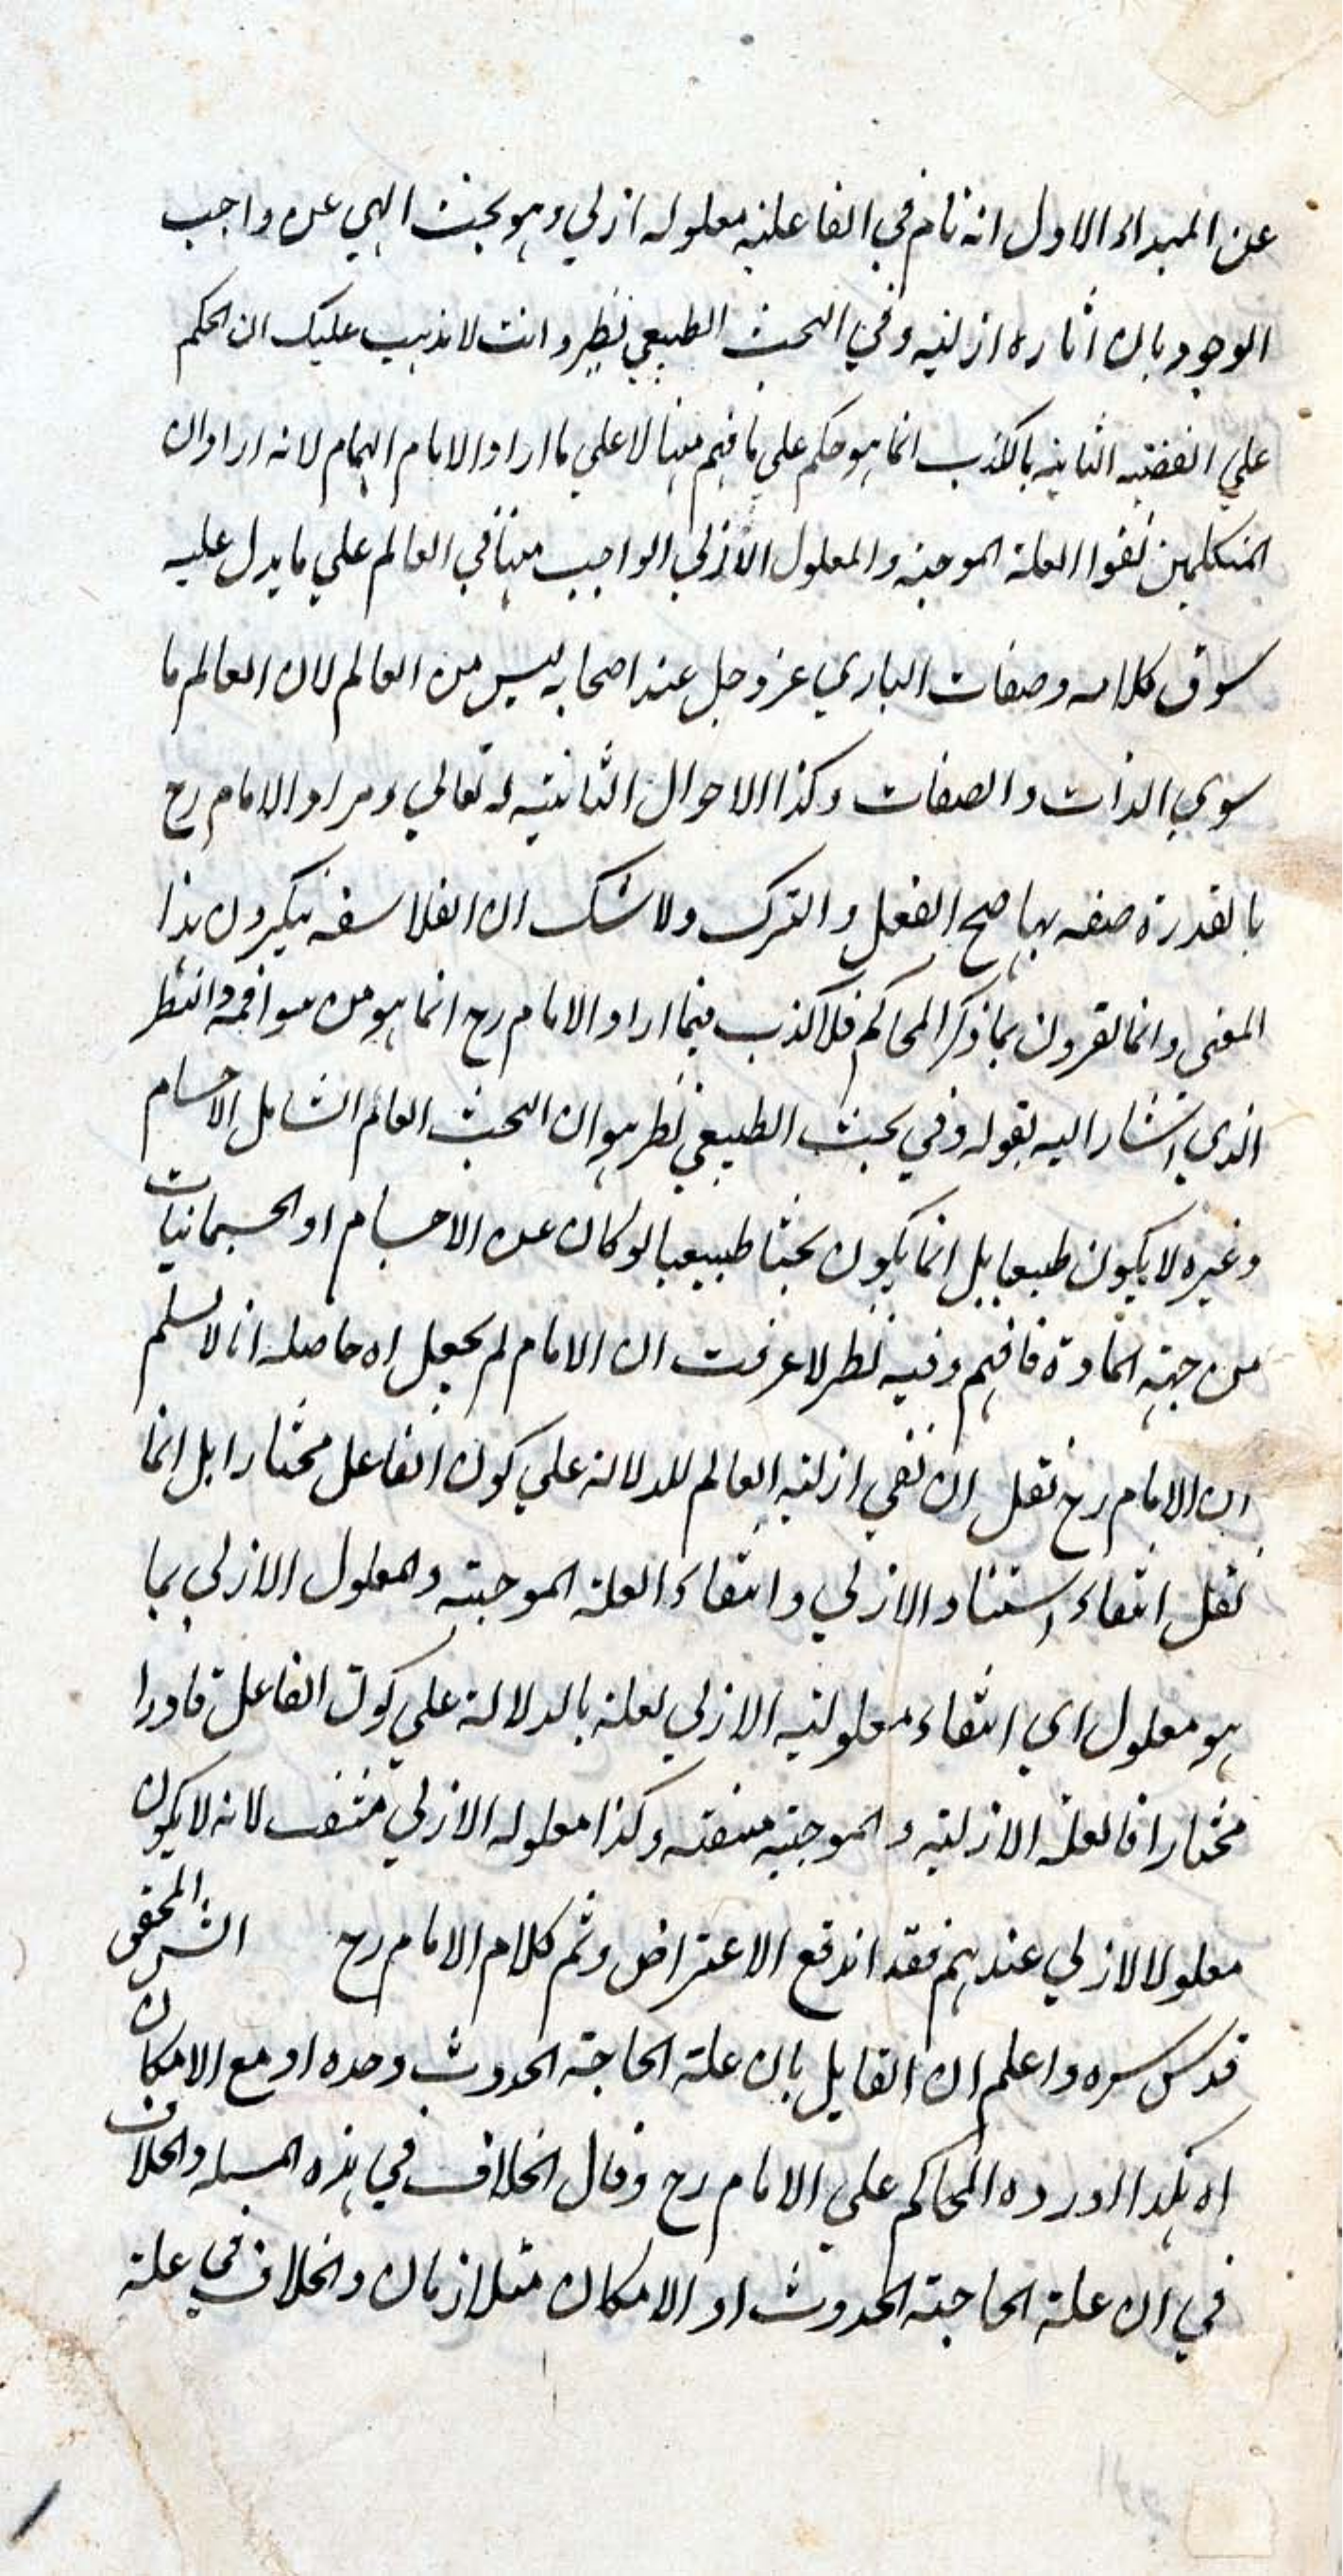 عن المبداء الاول انه تام في الفاعلية معلوله ازلي وهو بحث الهي عن واجب
الوجود بان اثاره ازلية وفي البحث الطبيعي نظر وانت لا يذهب عليك ان الحكم
علي القضية الثانية بالكذب انما هو حكم علي ما فهم ههنا لا علي ما اراد الامام الهمام لانه اراد ان
المتكلمين نفوا العلة الموجبة والمعلول الازلي الواجب ههنا في العالم علي ما يدل عليه
سوق كلامه وصفات الباري عز وجل عند اصحابه ليس من العالم لان العالم ما
سوي الذات والصفات وكذا الاحوال الثابتة له تعالي ومراد الامام رح
بالقدرة صفه بها صح الفعل والترك ولا شك ان الفلاسفه ينكرون هذا
المعنى وانما يقرون بما ذكر المحاكم فلا كذب فيما اراد الامام رح انما هو من سوافهمه والنظر
الذي اشار اليه بقوله وفي بحث الطبيعي نظر هو ان البحث العالم الشامل الاجسام
وغيره لا يكون طبعيا بل انما يكون بحثا طبيعيا لو كان عن الاجسام او الجسمانيات
من جهة المادة فافهم وفيه نظر لا عرفت ان الامام لم يجعل اه حاصله انا لا نسلم
ان الامام رح نقل ان نفي ازلية العالم للدلالة علي كون الفاعل مختارا بل انما
نقل انتفاء استناد الازلي وانتفاء العلة الموجبة والمعلول الازلي بما
هو معلول اي انتفاء معلولية الازلي لعلة بالدلالة علي كون الفاعل قادرا
مختارا فالعلة الازلية والموجبة منتفية وكذا معلوله الازلي منتف لانه لا يكون
معلولا لازلي عندهم فقد اندفع الاعتراض وتم كلام الامام رح الش المحقق
قدس سره واعلم ان القايل بان علة الحاجة الحدوث وحده او مع الامكان
اه هكذا اورده المحاكم علي الامام رح وقال الخلاف في هذه المسله والخلاف
في ان علة الحاجة الحدوث او الامكان متلازمان والخلاف في علة